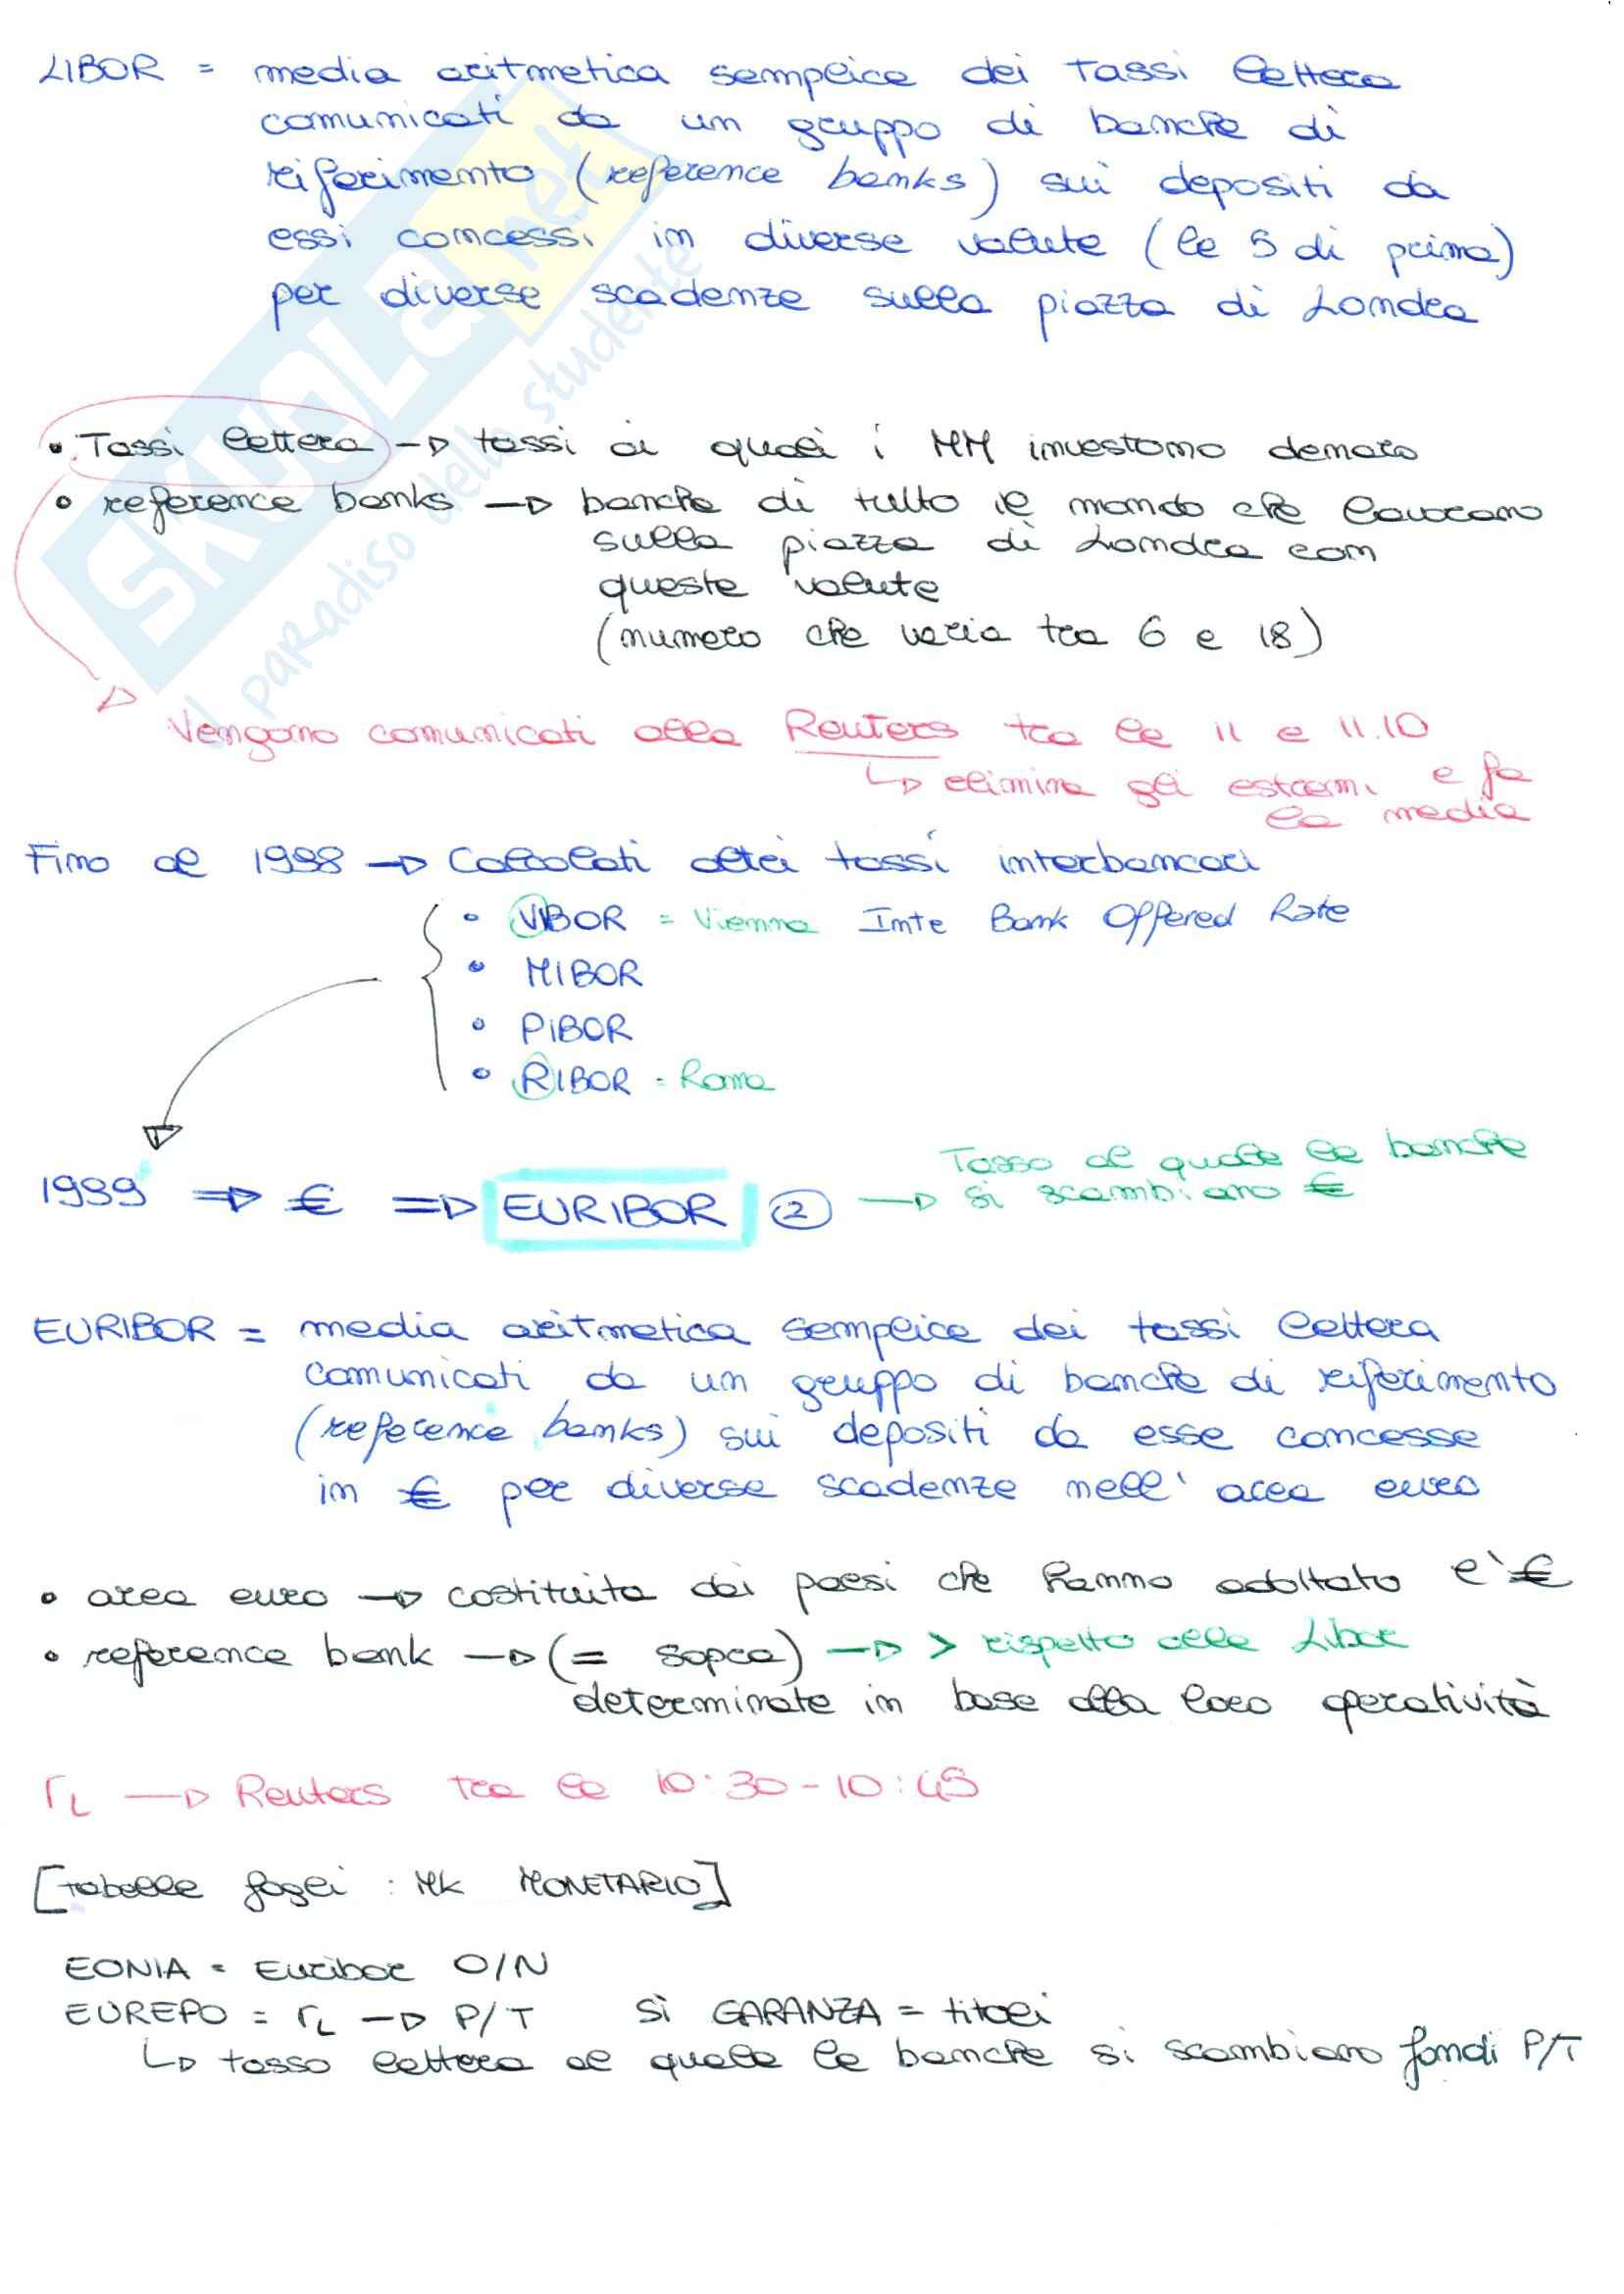 LIBOR = media aritmetica semplice dei tassi lettera
comunicati da un gruppo di banche di
riferimento (reference banks) sui depositi da
essi concessi in diverse valute (le 5 di prima)
per diverse scadenze sulla piazza di Londra
SKUOLA.net
il paradiso dello studente
• Tassi lettera → tassi ai quali i MM investono denaro
• reference banks → banche di tutto il mondo che lavorano
sulla piazza di Londra con
queste valute
(numero che varia tra 6 e 18)
Vengono comunicati alla Reuters tra le 11 e 11.10
↳ elimina gli estremi e fa
la media
Fino al 1998 → Calcolati altri tassi interbancari
• VIBOR = Vienna Inte Bank Offered Rate
• MIBOR
• PIBOR
• RIBOR = Roma
Tasso al quale le banche
1999 ⇒ € ⇒ EURIBOR ② → si scambiano €
EURIBOR = media aritmetica semplice dei tassi lettera
comunicati da un gruppo di banche di riferimento
(reference banks) sui depositi da esse concesse
in € per diverse scadenze nell' area euro
• area euro → costituita dai paesi che hanno adottato l'€
• reference bank → (= sopra) → > rispetto alle Libor
determinate in base alla loro operatività
rL → Reuters tra le 10:30-10:45
[tabelle fogli : MK MONETARIO]
EONIA = Euribor O/N
EUREPO = rL → P/T SÌ GARANZA = titoli
↳ tasso lettera al quale le banche si scambiano fondi P/T